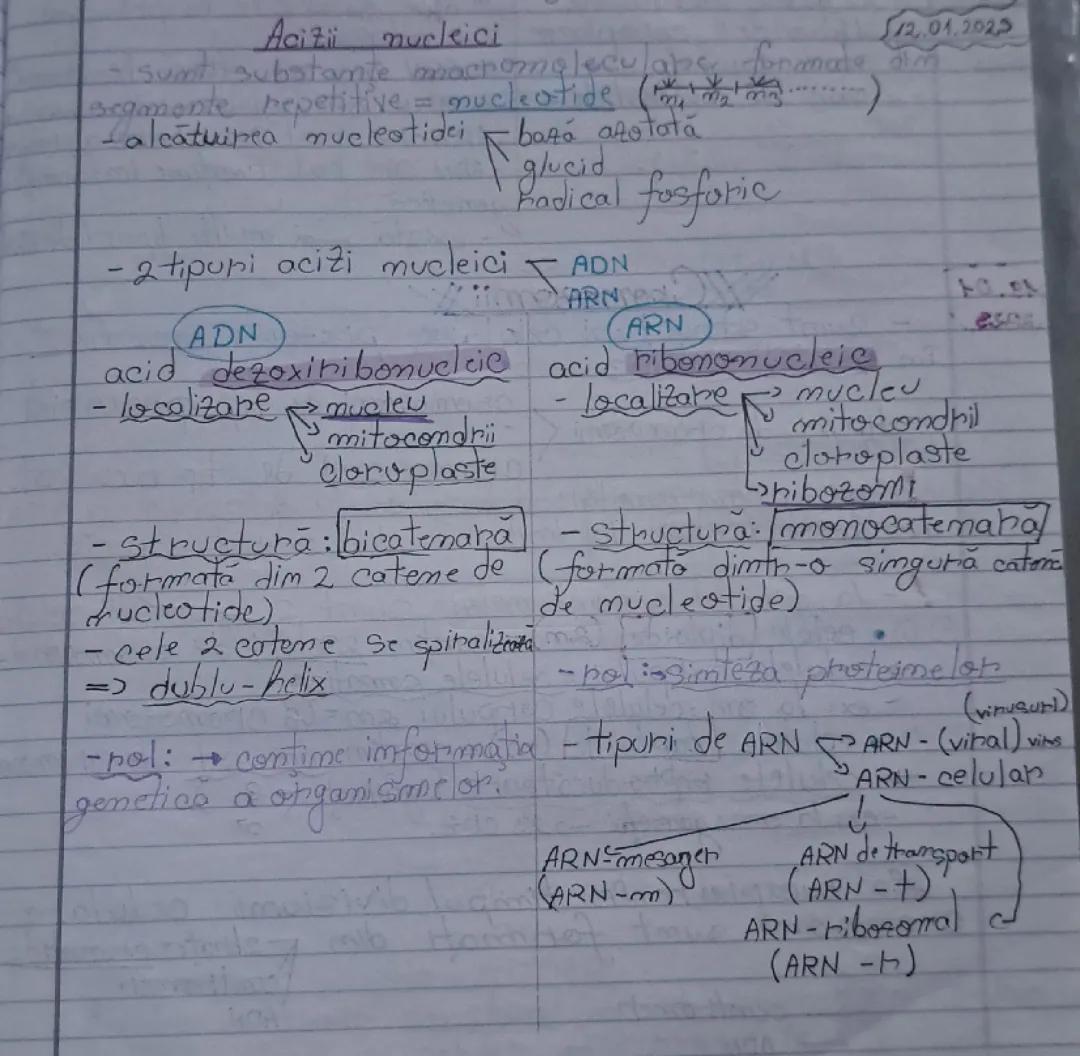 Acizii nucleici
12.01.2023
- sunt substanțe macromoleculare formate din
segmente repetitive = nucleotide (n1 + n2 + n3 ........)
- alcătuirea nucleotidei
bază azotată
glucid
radical fosforic
- 2 tipuri acizi nucleici
ADN
ARN
ADN
acid dezoxiribonucleic
- localizare → nucleu
mitocondrii
cloroplaste
- structură: bicatenară
(formată din 2 catene de
nucleotide)
- cele 2 catene se spiralizează
=> dublu-helix
- rol: → conține informația
genetică a organismelor.
ARN
acid ribononucleic
- localizare → nucleu
mitocondrii
cloroplaste
→ ribozomi
- structură: monocatenară
(formată dintr-o singură catenă
de nucleotide)
- rol: → sinteza proteinelor
(virusuri)
- tipuri de ARN → ARN - (viral)
ARN - celular
ARN-mesager
(ARN-m)
ARN de transport
(ARN-t)
ARN-ribozomal
(ARN-r)